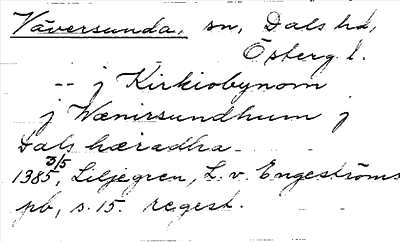 Väversunda, sn, Dals hd,
Östergl.
-- j Kirkiobynom
j Wænirsundhum j
Dals hæradha -
1385 3/5, Liljegren, L. v. Engeströms
pb, s. 15. regest.